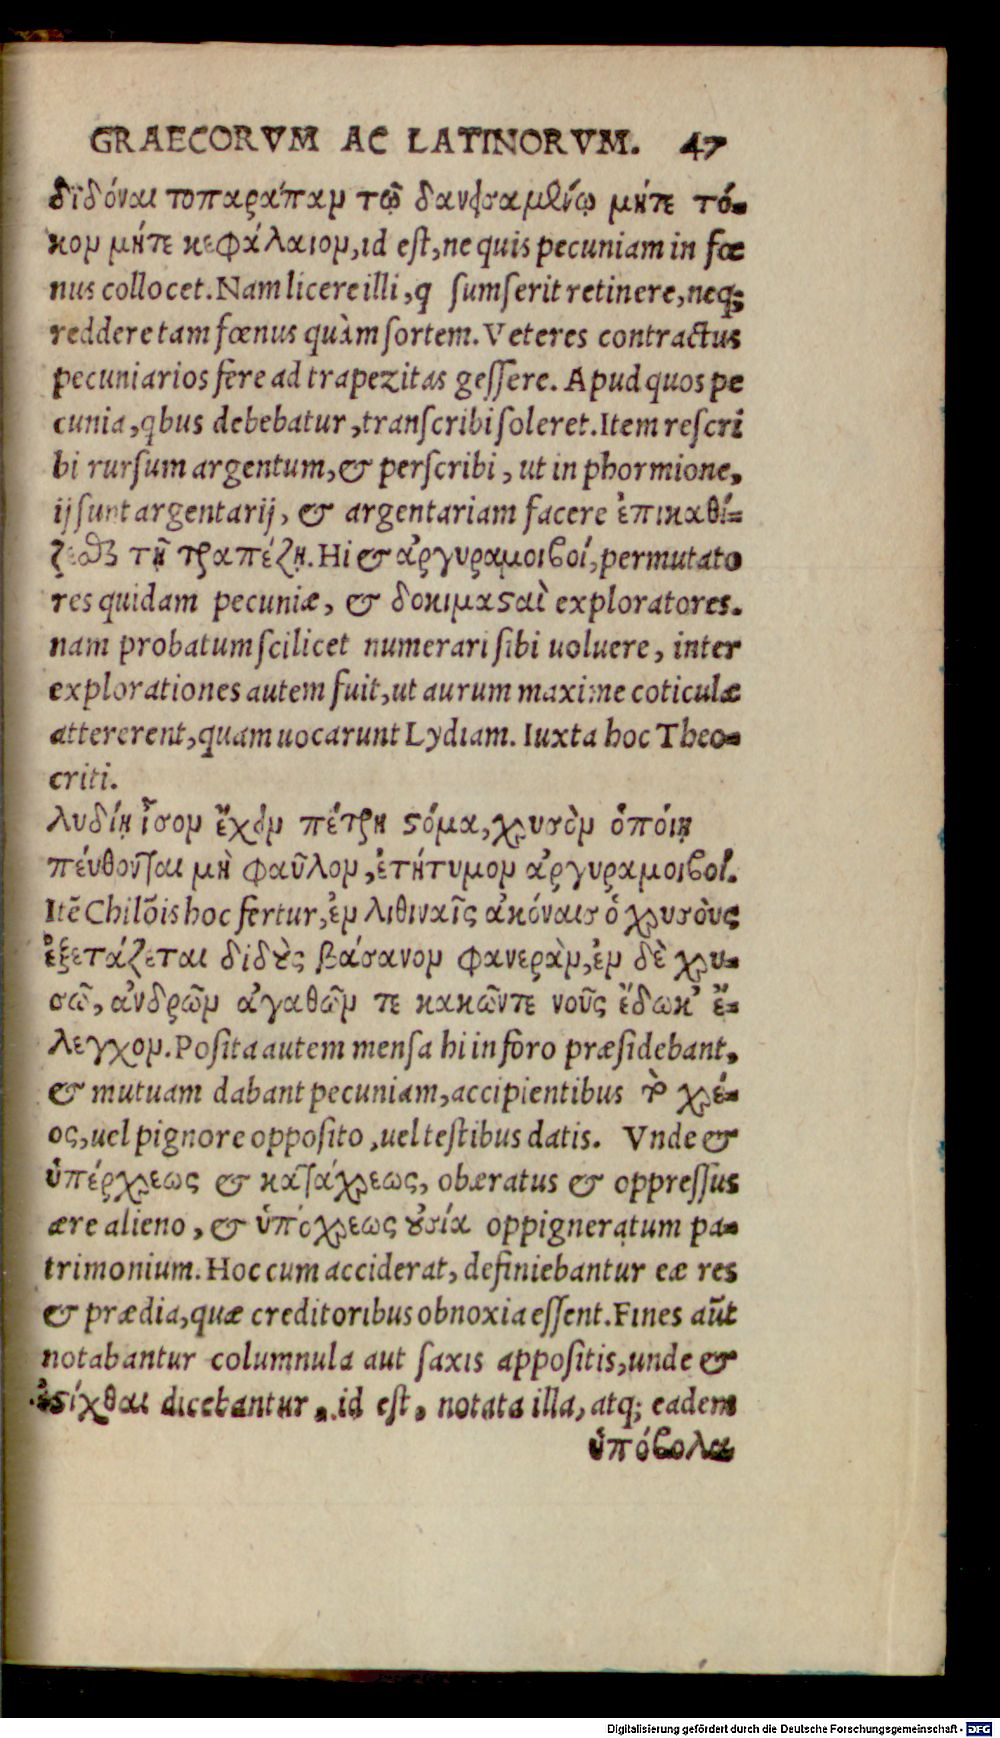 GRAECORVM AC LATINORVM. 47
διδόναι τοπαράπαν τῷ δανεισαμένῳ μήτε τό-
κον μήτε κεφάλαιον, id est, ne quis pecuniam in fœ
nus collocet. Nam licere illi, q sumserit retinere, neq;
reddere tam fœnus quàm sortem. Veteres contractus
pecuniarios fere ad trapezitas gessere. Apud quos pe
cunia, qbus debebatur, transcribi soleret. Item rescri
bi rursum argentum, & perscribi, ut in phormione,
ij sunt argentarij, & argentariam facere ἐπικαθί-
ζεσθαι τῇ τραπέζῃ. Hi & ἀργυραμοιβοί, permutato
res quidam pecuniæ, & δοκιμασαὶ exploratores.
nam probatum scilicet numerari sibi uoluere, inter
explorationes autem fuit, ut aurum maxime coticulæ
attererent, quam uocarunt Lydiam. Iuxta hoc Theo-
criti.
λυδίῃ ἶσον ἔχειν πέτρῃ ςόμα, χρυσὸν ὁπόιῃ
πέυθονται μὴ φαῦλον, ἐτήτυμον ἀργυραμοιβοί.
Itē Chilōis hoc fertur, ἐν λιθιναῖς ἀκόναισ ὁ χρυσὸυς
ἐξετάζεται διδοὺς βάσανον φανερὰν, ἐν δὲ χρυ-
σῶ, ἀνδρῶν ἀγαθῶν τε κακῶντε νοῦς ἔδωκ' ἔ-
λεγχον. Posita autem mensa hi in foro præsidebant,
& mutuam dabant pecuniam, accipientibus τὸ χρέ-
ος, uel pignore opposito, uel testibus datis. Vnde &
ὑπέρχρεως & κατάχρεως, obæratus & oppressus
ære alieno, & ὑπόχρεως οὐσία oppigneratum pa-
trimonium. Hoc cum acciderat, definiebantur eæ res
& prædia, quæ creditoribus obnoxia essent. Fines aūt
notabantur columnula aut saxis appositis, unde &
ἐςίχθαι dicebantur, id est, notata illa, atq; eadem
ὑπόβολα
Digitalisierung gefördert durch die Deutsche Forschungsgemeinschaft - DFG